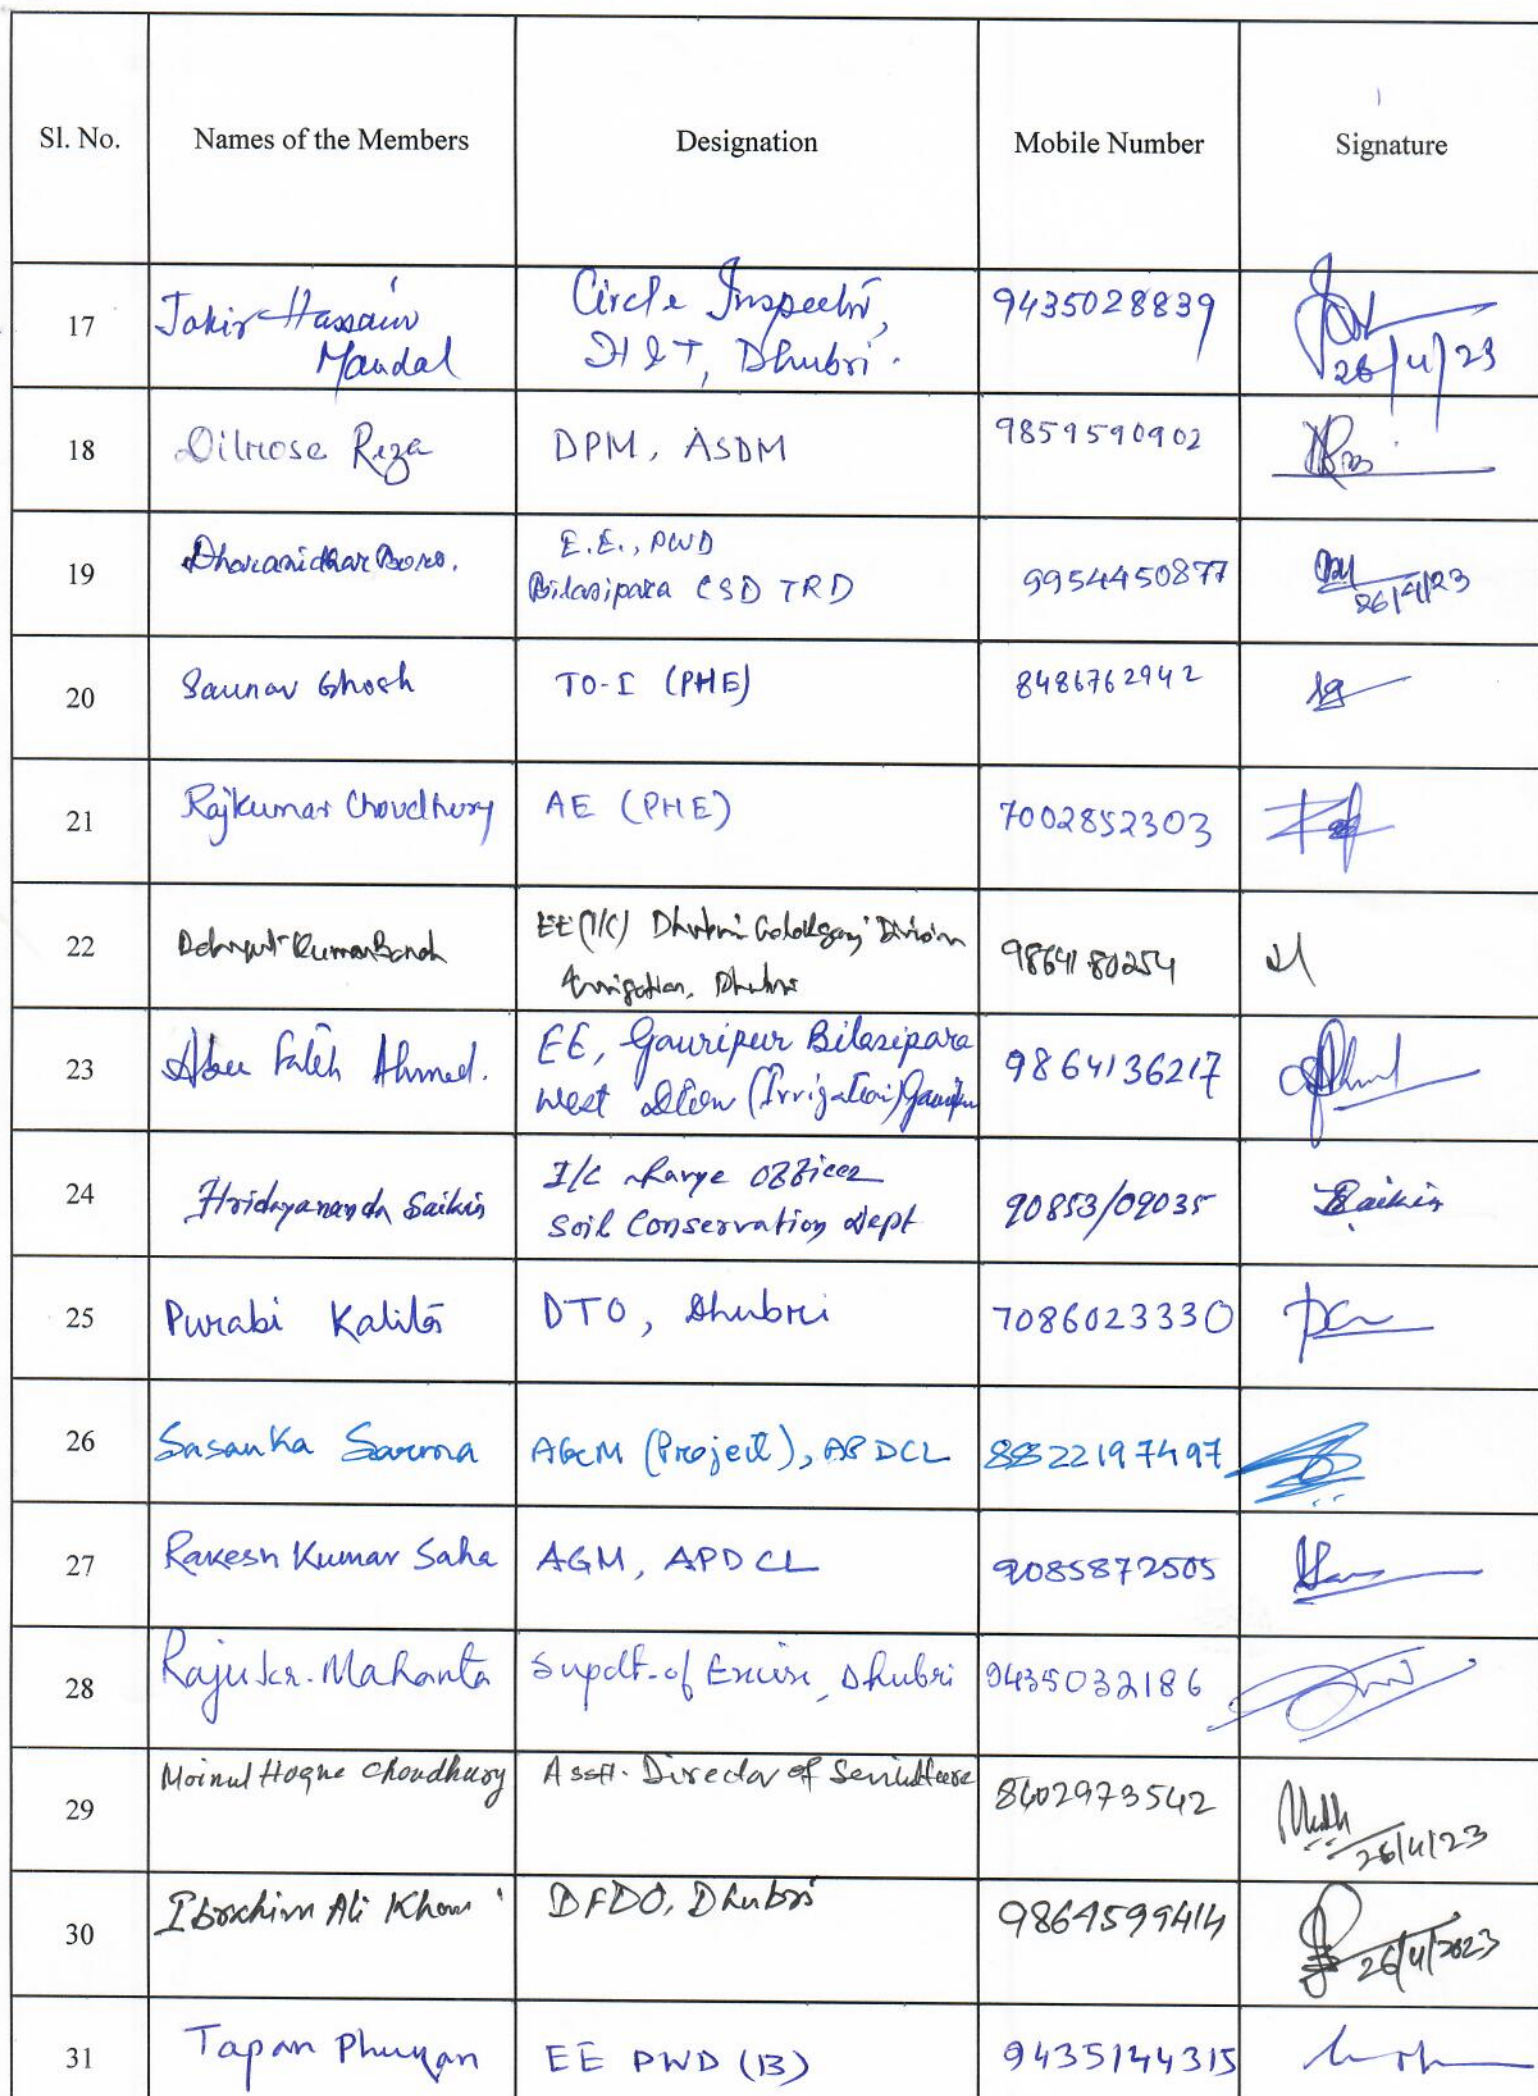 Sl. No. Names of the Members Designation Mobile Number Signature
17 Jakir Hassain Circle Inspector, 9435028839
Mandal H&T, Dhubri. 26/4/23
18 Dilrose Reza DPM, ASDM 9859590902
19 Dharanidhar Boro. E.E., PWD 9954450877
Bilasipara CSD TRD 26/4/23
20 Saunav Ghosh TO-I (PHE) 8486762942
21 Rajkumar Choudhury AE (PHE) 7002852303
22 Kumar EE (I/C) Dhubri Golokganj Division 9864180254
Irrigation, Dhubri
23 Abu Faleh Ahmed. EE, Gauripur Bilasipara 9864136217
West (Irrigation)
24 Hridayananda Saikia I/C charge Officer 90853/09035 Saikia
Soil Conservation Dept
25 Purabi Kalita DTO, Dhubri 7086023330
26 Sasanka Sarma AGM (Project), APDCL 8822197497
27 Rakesh Kumar Saha AGM, APDCL 9085872505
28 Raju kr. Mahanta Supdt. of Excise, Dhubri 9435032186
29 Moinul Hoque Choudhury Asstt. Director of Sericulture 8402973542
26/4/23
30 Ibrahim Ali Khan DFDO, Dhubri 9864599414
26/4/2023
31 Tapan Phukan EE PWD (B) 9435144315